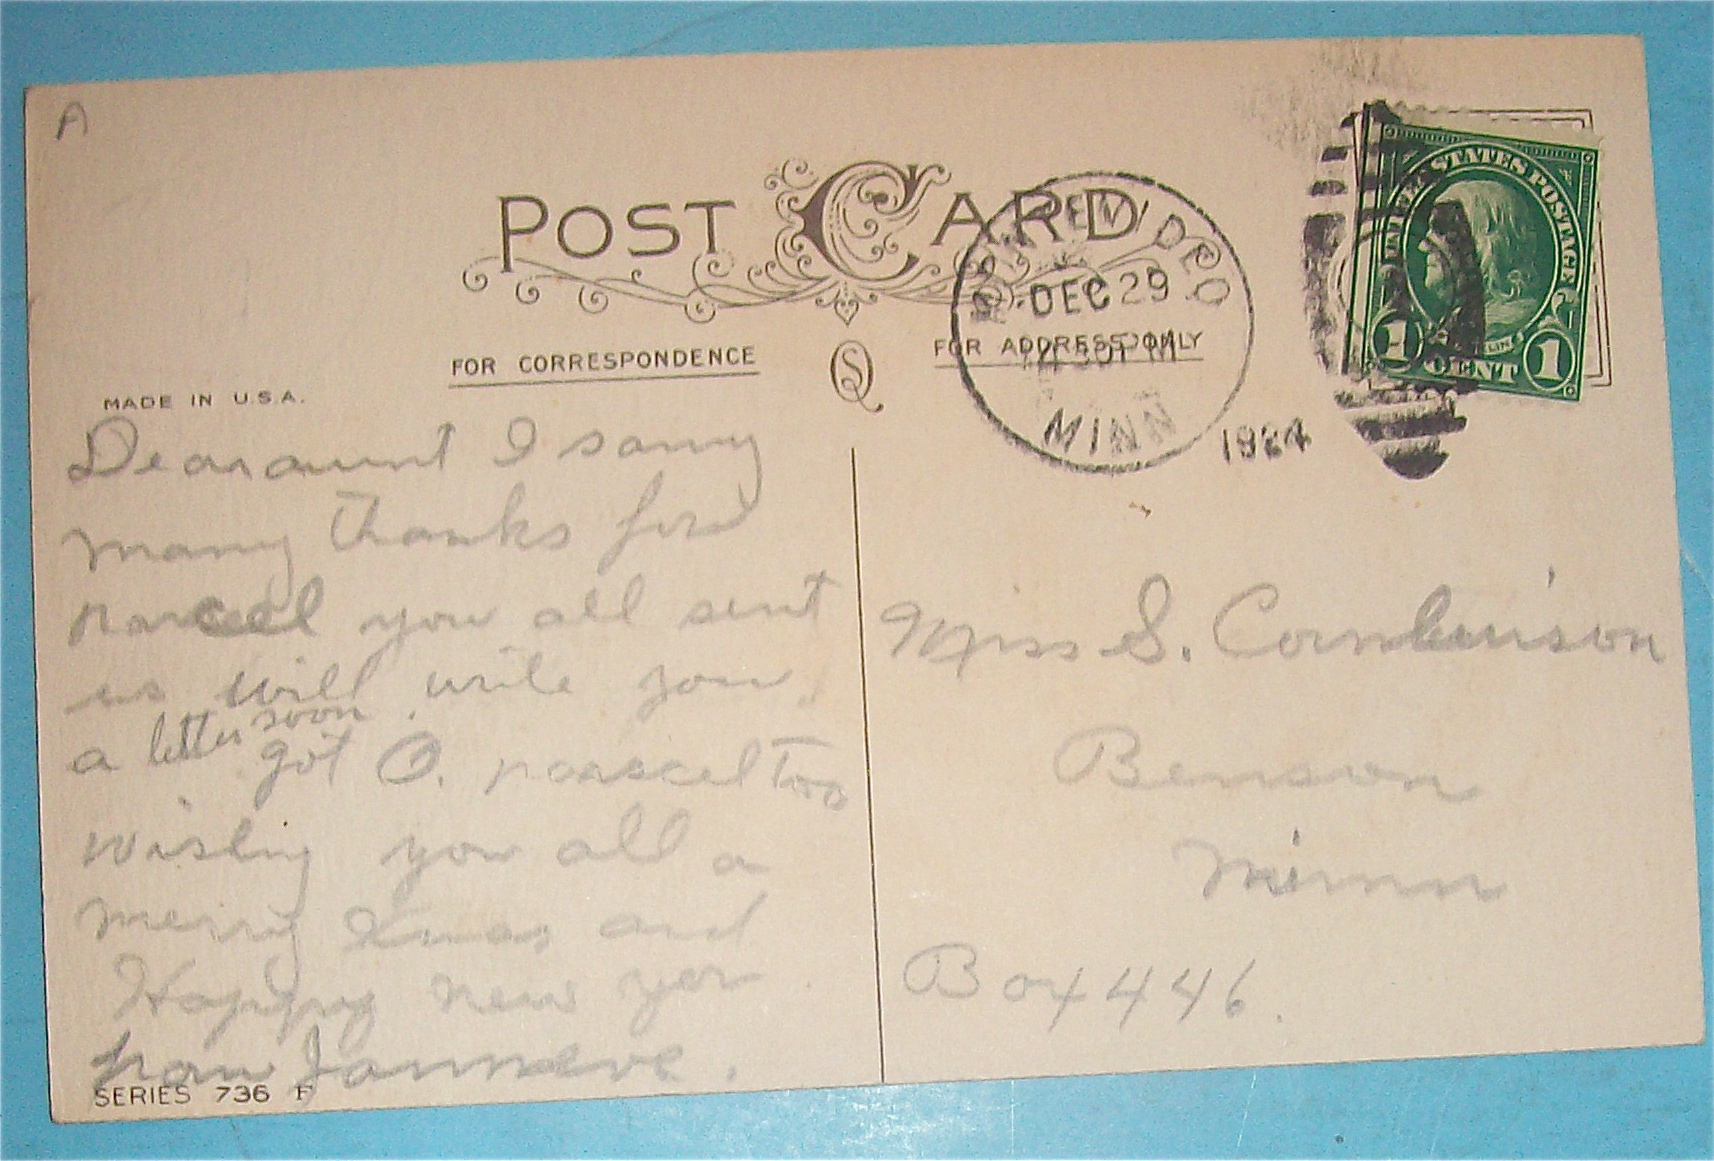 A
POST CARD
DEC 29
MINN
1924
UNITED STATES POSTAGE
1 CENT 1
FOR CORRESPONDENCE
FOR ADDRESS ONLY
MADE IN U.S.A.
Dear aunt I say
many thanks for
parcel you all sent
us will write you
a letter soon.
got O. parscel too
wishing you all a
merry Xmas and
Happy new yer
from
SERIES 736 F
Miss S.
Benson
Minn
Box 446.